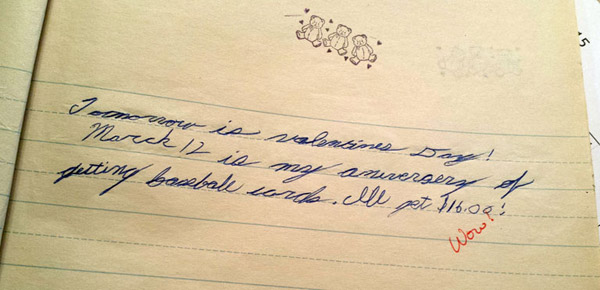 Tomorrow is valentines Day!
March 12 is my aniversery of
getting baseball cards. I'll get $16.00!
Wow!
5